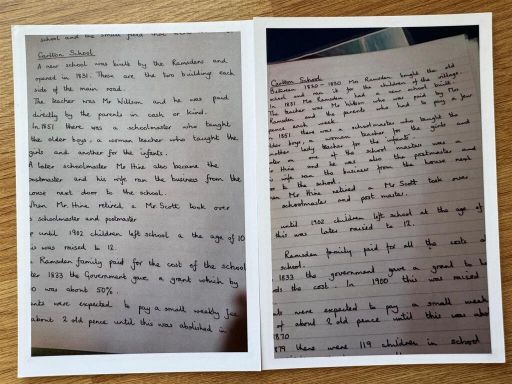 school and the small
Carlton School
A new school was built by the Ramsdens and
opened in 1831. These are the two building each
side of the main road.
The teacher was Mr Willson and he was paid
directly by the parents in cash or kind.
In 1851 there was a schoolmaster who taught
the older boys, a woman teacher who taught the
girls and another for the infants.
A later schoolmaster Mr Hine also became the
postmaster and his wife ran the business from the
house next door to the school.
When Mr Hine retired, a Mr Scott took over
s schoolmaster and postmaster
until 1902 children left school a the age of 10
was raised to 12.
Ramsden family paid for the cost of the school
ter 1833 the Government gave a grant which by
0 was about 50%
nts were expected to pay a small weekly fee
about 2 old pence until this was abolished in
Carlton School
Between 1830 - 1880 Mrs Ramsden bought the old
school and ran it for the children of the village.
In 1831 Mrs Ramsden had a new school built.
The teacher was Mr Willson who was paid by Mrs
Ramsden and the parents who had to pay a few
pence each week
1851 there was a schoolmaster who taught the
older boys, a woman teacher for the girls and
lady teacher for the infants
one of the school masters was a
Hine and he was also the postmaster and
wife ran the business from the house next
to the school.
Mr Hine retired a Mr Scott took over
schoolmaster and post master.
until 1902 children left school at the age of
this was later raised to 12.
Ramsden family paid for all the costs o
school.
1833 the government gave a grant to h
ds the cost. In 1900 this was raised
ts were expected to pay a small week
of about 2 old pence until this was abo
1870
879 there were 119 children in school